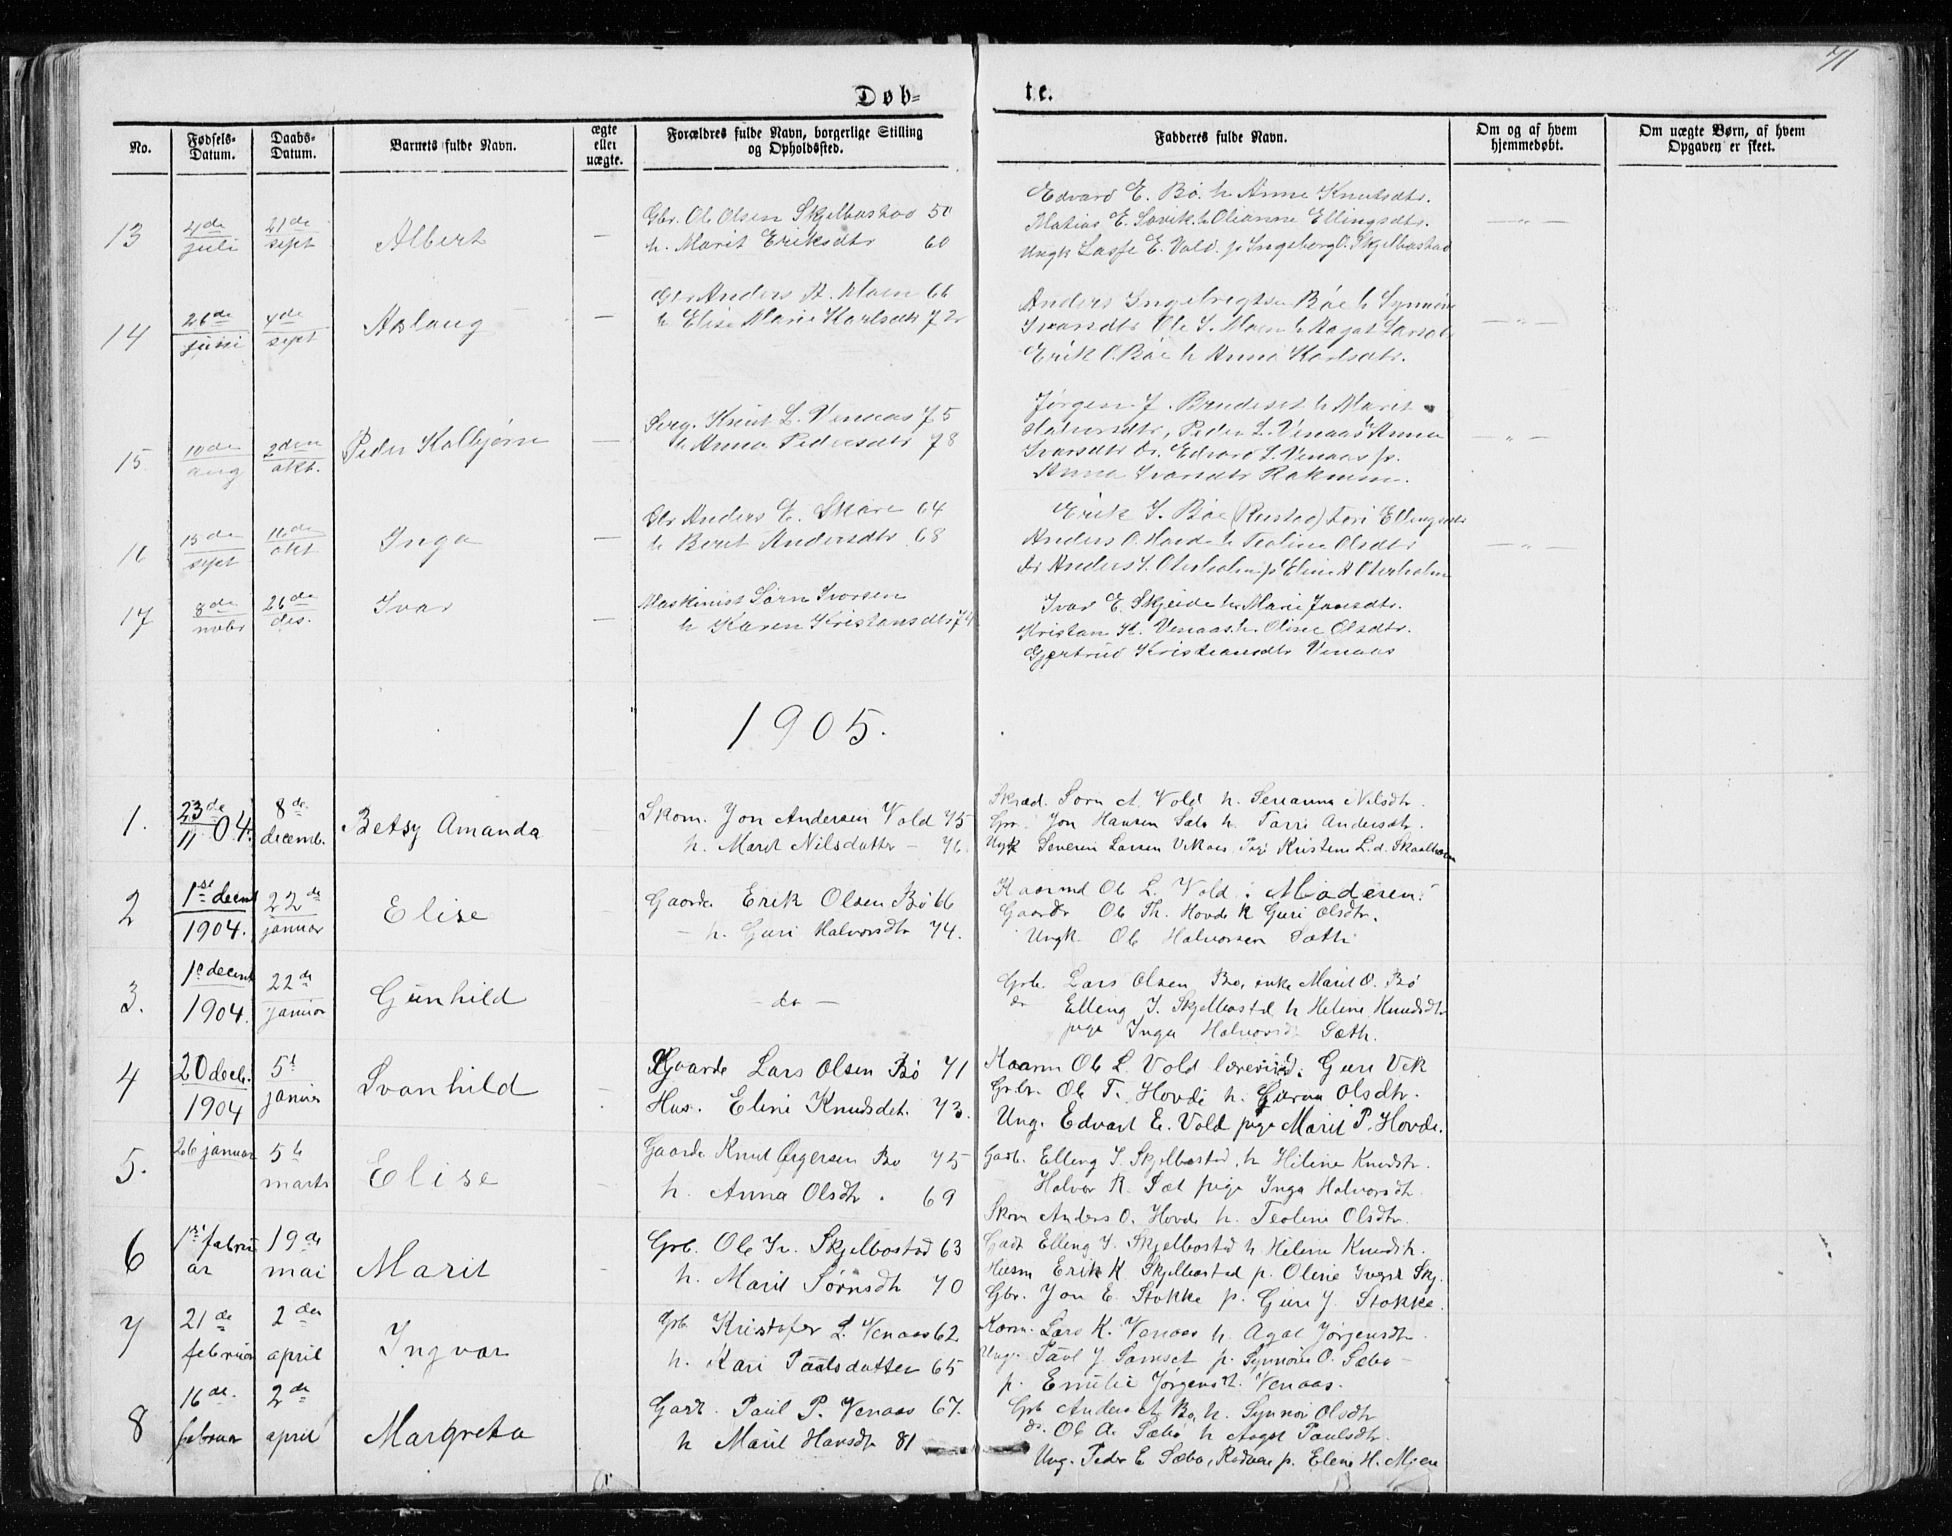 71
Døb- te.
No. Fødsels-Datum. Daabs-Datum. Barnets fulde Navn. ægte eller uægte. Forældres fulde Navn, borgerlige Stilling og Opholdssted. Fadderes fulde Navn. Om og af hvem hjemmedøbt. Om uægte Børn, af hvem Opgaven er skeet.
13 4de juli 21de sept Albert —
Gbr. Ole Olsen Skjelbostad 50
h. Marit Eriksdtr 60
Edvard E. Bø. h Anne Knutsdtr.
Matias E. Sovik. h Olianne Ellingsdtr.
Ungk Lasse E. Vold. p Ingeborg O. Skjelbostad
— " —
14 26de juni 4de sept Aslaug —
Gbr Anders A. Moen 66
h Elise Marie Karlsdtr 72
Anders Ingebrigtsen Bøe h Synnøve
Ivarsdtr Ole I. Moen h Aagot Larsdtr
Erik O. Bøe h Anna Karlsdtr.
— " —
15 10de aug 2den okt. Peder Kolbjørn —
Serg. Knut L. Venaas 75
h Anna Pedersdtr 78
Jørgen J. Bendeset h Marit
Halvorsdtr, Peder L. Venaas Anna
Ivarsdtr dr. Edvard L. Venaas p.
Anna Ivarsdtr
— " —
16 15de sept 16de okt Inga —
Gbr Anders E. Skare 64
h Beret Andersdtr 68
Erik I. Bøe (Rustad) Kari Ellingsdtr
Anders O. Hovde h Teoline Olsdtr
dr Anders I. Oterholm p Eline A Oterholm
— " —
17 8de nvbr 26de des. Ivar —
Maskinist Sørn Ivarsen
h Karen Kristansdtr 74
Ivar E. Skjeide h Marie Jonsdtr.
Kristan K. Venaas h. Oline Olsdtr.
Gjertrud Kristiansdtr Venaas
1905.
1. 23de 11 04. 8de decemb. Betsy Amanda
Skom. Jon Andersen Vold 75
h. Marit Nilsdatter — 76.
Skræd. Sørn A. Vold h. Serianna Nilsdtr.
Gbr. Jon Hansen Sæbø h. Torri Andersdtr.
Ungk Severin Larsen Vekaas Pige Kristine L.d.
2 1ste decemb 1904. 22de januar Elise
Gaardr. Erik Olsen Bø 66
— h. Guri Halvorsdtr 74.
Kaarmd Ole L. Vold i Maderen:
Gaardr Ole Th. Hovde h Guri Olsdtr.
Ungk. Ole Halvorsen Sæth
3. 1e decemb 1904. 22de januar Gunhild
— do —
Grb. Lars Olsen Bø, enke Marit O. Bø
dr Elling I. Skjelbostad h Heline Knudsdtr
pige Inga Halvorsd. Sæth.
4 20 decb. 1904 5t januar Svanhild
Gaardr Lars Olsen Bø 71
Hus. Eline Knudsdt. 73.
Kaarm Ole L. Vold lærerind. Guri Vik
Grbr. Ole T. Hovde h. Guruu Olsdtr.
Ung. Edvart E. Vold pige Marit P. Hovde.
5. 26 januar 5te marts Elise
Gaardr Knut Ørgersen Bø 75
h. Anna Olsdtr. 69
Gadb. Elling I. Skjelbostad, h Heline Knudsdtr.
Halvor R. Sæt pige Inga Halvorsdtr.
Skom Anders O. Hovde h. Teoline Olsdtr.
6 1ste februar 19de mai Marit
Grb. Ole Kr. Skjelbostad 63
h. Marit Sørnsdtr 70
Gadb Elling I. Skjelbostad h Heline Knudsdtr.
Husm Erik K Skjelbostad p. Oline Ingvd. Skj.
Gbr. Jon E. Stokke p. Guri J. Stokke.
7 21de februar 2den april Ingvar
Grb Kristofer L. Venaas 62
h. Kari Paulsdatter 65
Kaarm. Lars K. Venaas h. Agat Jørgensdtr.
Ungk. Paul J Samset p. Synnøve O. Sæbø —
p. Emelie Jørgensdt. Venaas.
8 16de februar 2de april Margreta
Gadb. Paul P. Venaas 67.
h Marit Hansdtr 81
Grb Anders A Bø, h. Synnøv Olsdtr
dr. Ole A. Sæbø h Aagot Paulsdtr.
Ung. Peder E Sæbø, p. Elene H. Moen